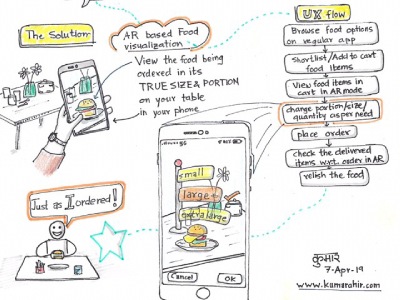 The Solution
AR based Food
visualization
View the food being
ordered in its
TRUE SIZE & PORTION
on your table
in your phone
UX flow
Browse food options
on regular app
Shortlist/Add to cart
food items
View food items in
cart in AR mode
change portion/size/
quantity as per need
place order
check the delivered
items w.r.t. order in AR
relish the food
small
large
extra large
Cancel
OK
Just as I
ordered!
कुमार
7-Apr-19
www.kumarahir.com